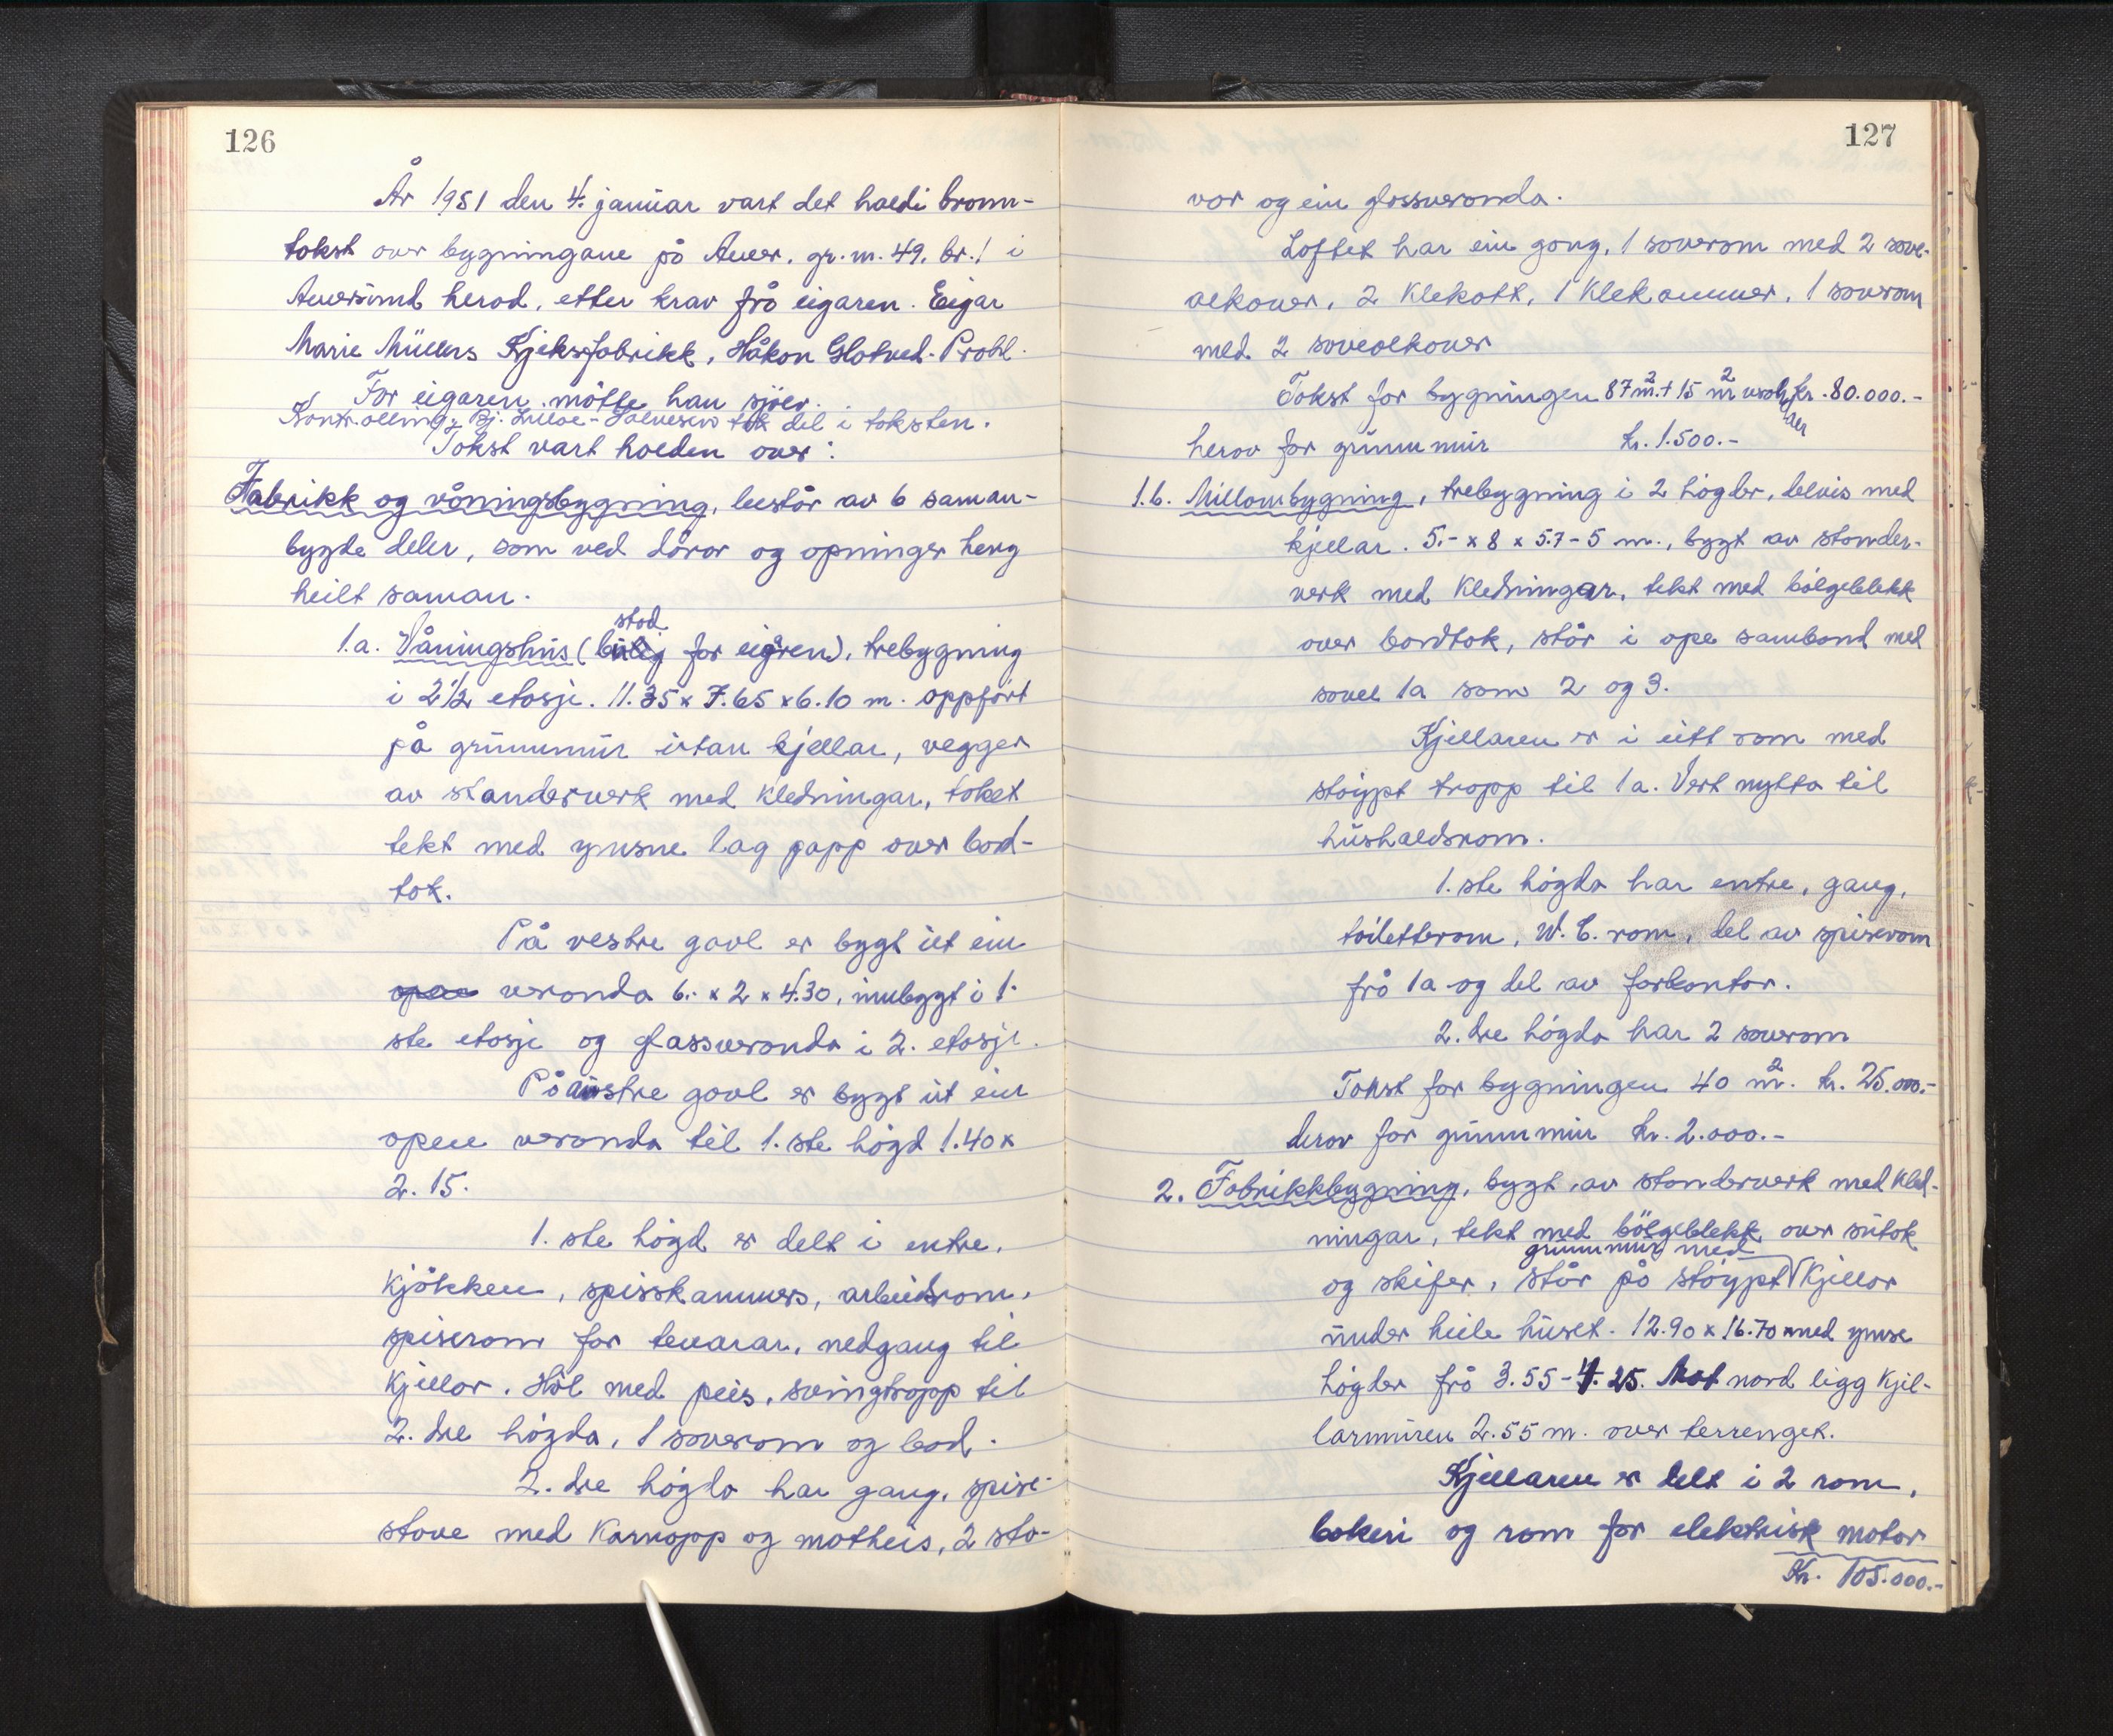 126
År 1951 den 4. januar vart det haldi brann-
takst over bygningane på Alver, gr. nr. 49. br. 1 i
Alversund herad, etter krav frå eigaren. Eigar
Marie Müllers Kjeksfabrikk, Håkon Glatved-Prahl.
For eigaren møtte han sjølv.
Kontr.olling. Bj. Lilloe-Salvesen tok del i taksten.
Takst vart halden over:
Fabrikk og våningsbygning, består av 6 saman-
bygde deler, som ved dører og opninger heng
heilt saman.
stad
1.a. Våningshus (bulig for eigaren), trebygning
i 2½ etasje. 11.35 x 7.65 x 6.10 m. oppført
på grunnmur utan kjellar, vegger
av standerverk med kledningar, taket
tekt med ymsne lag papp over bord-
tak.
På vestre gavl er bygt ut ein
open veranda 6.- x 2 x 4.30, innbygt i 1.
ste etasje og glassveranda i 2. etasje.
På austre gavl er bygt ut ein
open veranda til 1. ste høgd 1.40 x
2.15.
1. ste høgd er delt i entre,
kjøkken, spisskammers, arbeidsrom,
spiserom for tenarar, nedgang til
kjellar. Hall med peis, svingtrapp til
2. dre høgda, 1 soverom og bad.
2. dre høgda har gang, spise-
stove med karnapp og matheis, 2 sto-
127
vor og ein glassveranda.
Loftet har ein gang, 1 soverom med 2 sove-
alkover, 2 klekott, 1 klekammer, 1 soverom
med 2 sovealkover
Takst for bygningen 87 m². + 15 m² verander kr. 80.000.-
herav for grunnmur kr. 1.500.-
1.b. Millombygning, trebygning i 2 høgder, delvis med
kjellar. 5.- x 8 x 5.7 - 5 m., bygt av stander-
verk med kledningar, tekt med bølgeblekk
over bordtak, står i ope samband med
såvel 1a som 2 og 3.
Kjellaren er i eitt rom med
støypt trapp til 1a. Vert nytta til
hushaldsrom.
1. ste høgda har entre, gang,
toiletterom, W.C. rom, del av spiserom
frå 1a og del av forkontor.
2. dre høgda har 2 soverom
Takst for bygningen 40 m². kr. 25.000.-
derav for grunnmur kr. 2.000.-
2. Fabrikkbygning, bygt av standerverk med kled-
ningar, tekt med bølgeblekk over sutak
grunnmur med
og skifer, står på støypt kjellar
under heile huset. 12.90 x 16.70 med ymse
høgder frå 3.55 - 4.25. Mot nord ligg kjel-
larmuren 2.55 m. over terrenget.
Kjellaren er delt i 2 rom,
bakeri og rom for elektrisk motor
Kr. 105.000.-